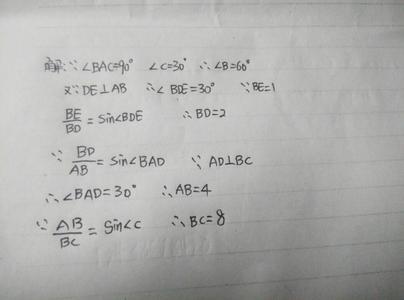 解:∵∠BAC=90° ∠C=30° ∴∠B=60°
又∵DE⊥AB ∴∠BDE=30° ∵BE=1
BE/BD=Sin∠BDE ∴BD=2
∵BD/AB=Sin∠BAD ∵AD⊥BC
∴∠BAD=30° ∴AB=4
∵AB/BC=Sin∠C ∴BC=8